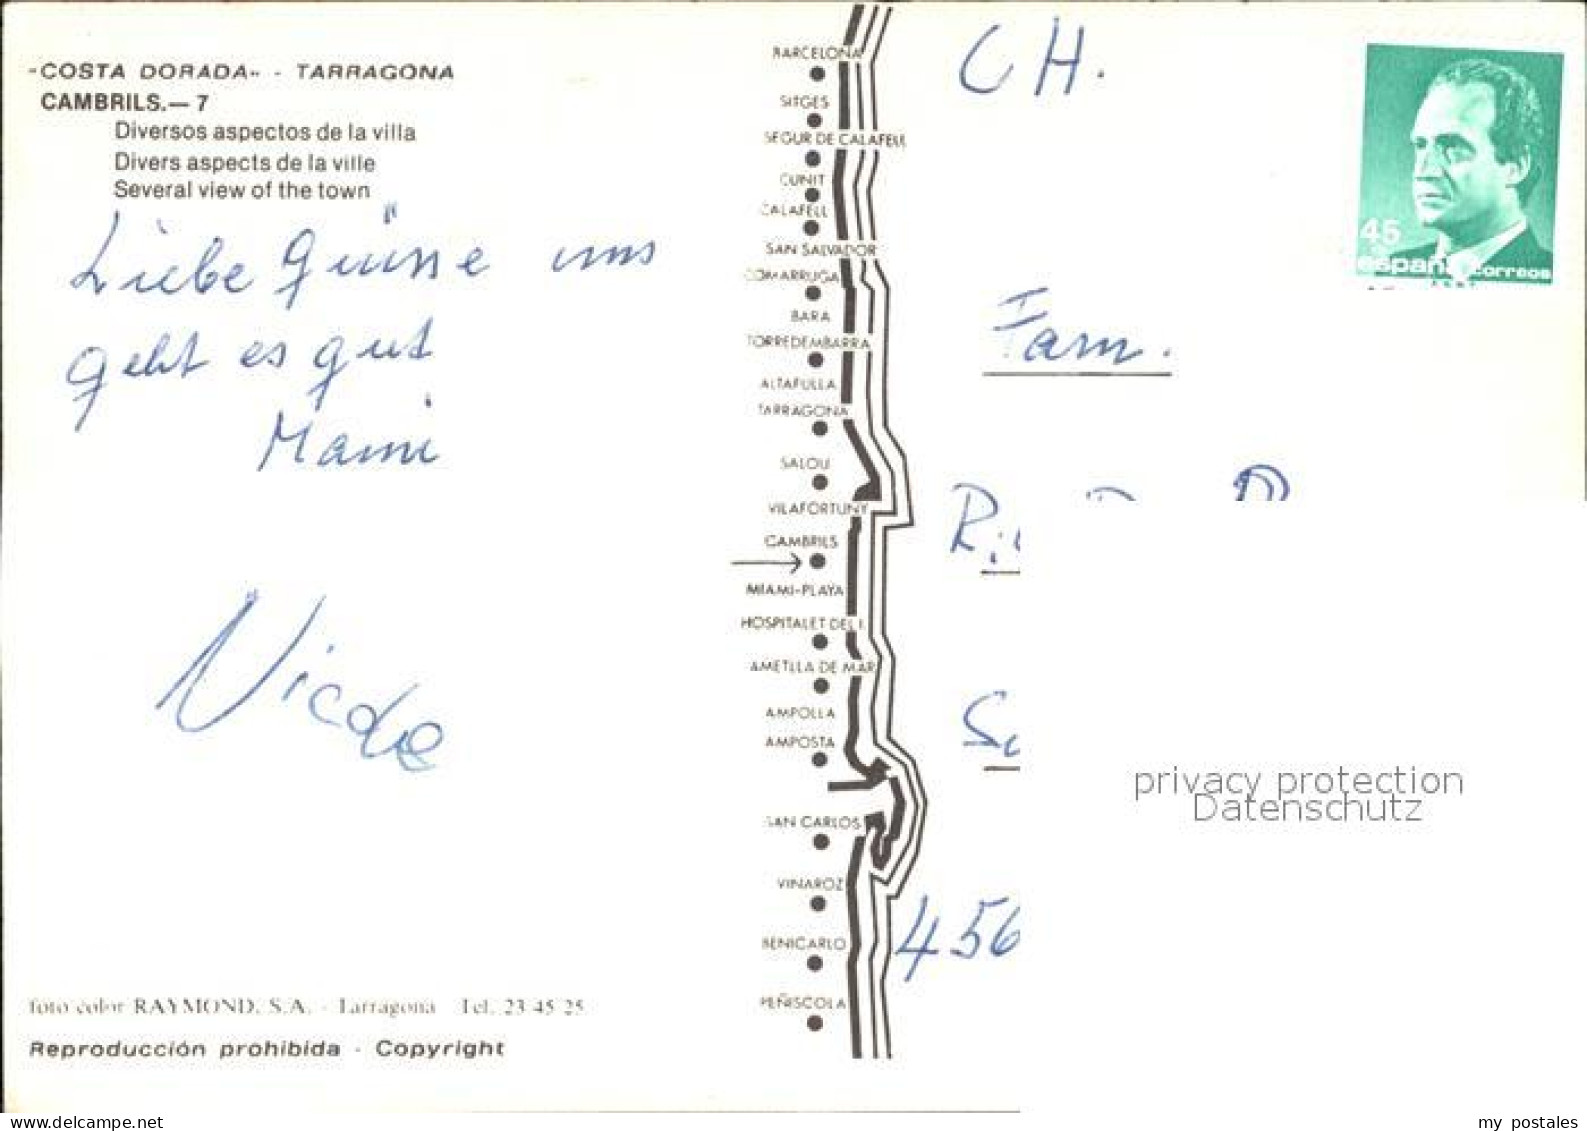 "COSTA DORADA" - TARRAGONA
CAMBRILS.— 7
Diversos aspectos de la villa
Divers aspects de la ville
Several view of the town
Liebe Grüsse uns
geht es gut
Mami
Nicole
foto color RAYMOND, S.A. - Tarragona Tel. 23 45 25
Reproducción prohibida - Copyright
BARCELONA
SITGES
SEGUR DE CALAFELL
CUNIT
CALAFELL
SAN SALVADOR
COMARRUGA
BARA
TORREDEMBARRA
ALTAFULLA
TARRAGONA
SALOU
VILAFORTUNY
CAMBRILS
MIAMI-PLAYA
HOSPITALET DEL I.
AMETLLA DE MAR
AMPOLLA
AMPOSTA
SAN CARLOS
VINAROZ
BENICARLO
PEÑISCOLA
CH.
45
españa correos
Fam.
456
privacy protection
Datenschutz
delcampe.net
my postales